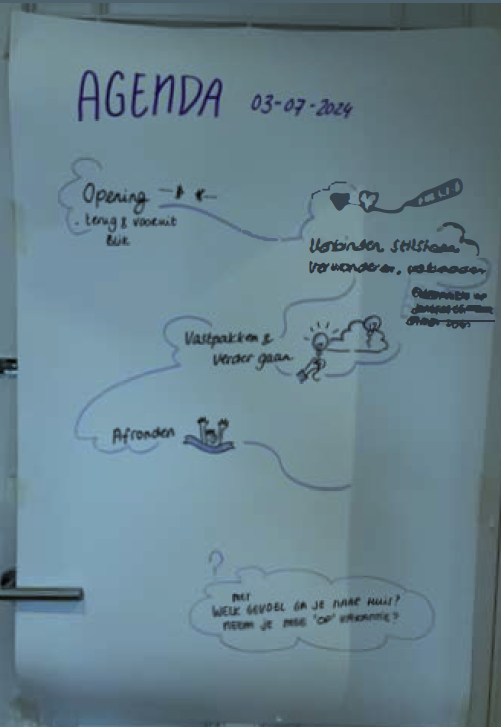 AGENDA 03-07-2024
Opening
. terug & vooruit
blik
Verbinden, stilstaan
verwonderen,
Vastpakken &
verder gaan
Afronden
?
MET
WELK GEVOEL GA JE NAAR HUIS?
NEEM JE MEE 'OP' VAKANTIE?